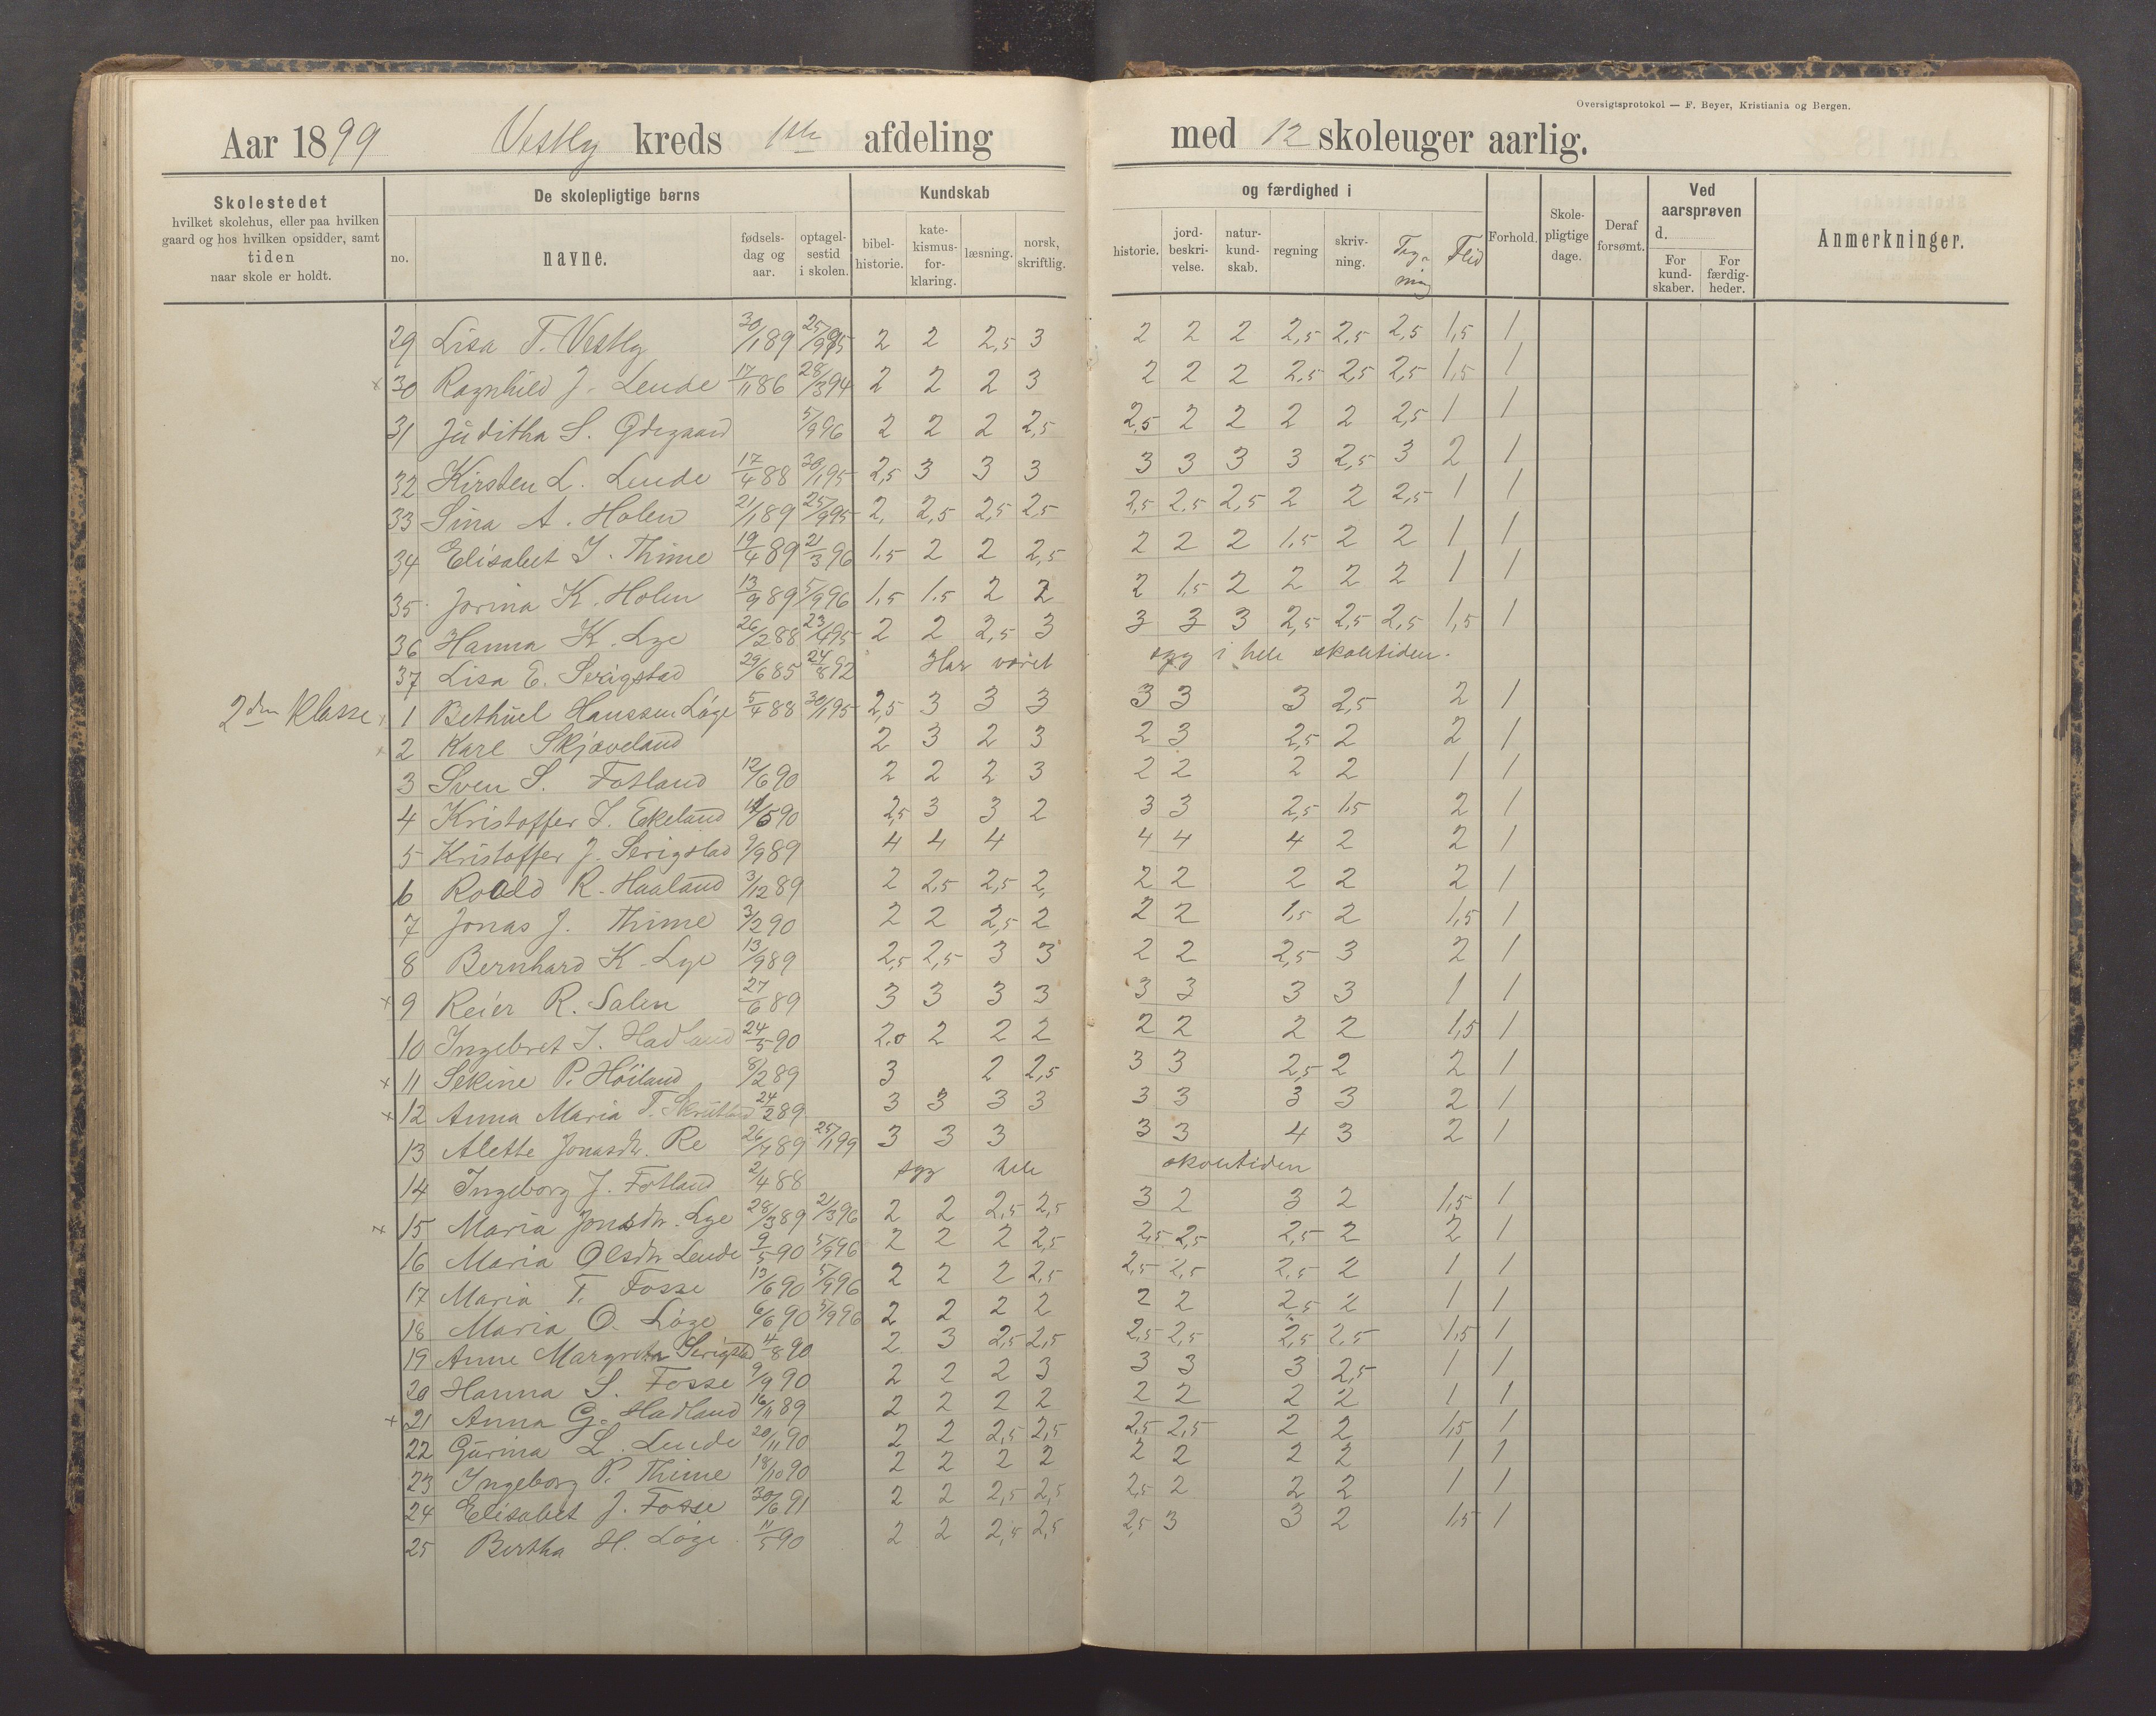 Oversigtsprotokol — F. Beyer, Kristiania og Bergen.
Aar 1899 Vestly kreds 1ste afdeling med 12 skoleuger aarlig.
Skolestedet hvilket skolehus, eller paa hvilken gaard og hos hvilken opsidder, samt tiden naar skole er holdt.
De skolepligtige børns
no. navne. fødsels-dag og aar. optagel-sestid i skolen.
Kundskab og færdighed i
bibel-historie. kate-kismus-for-klaring. læsning. norsk, skriftlig. historie. jord-beskri-velse. natur-kund-skab. regning skriv-ning. Teg-ning Flid
Forhold. Skole-pligtige dage. Deraf forsømt.
Ved aarsprøven d.
For kund-skaber. For færdig-heder.
Anmerkninger.
29 Lisa T. Vestly 30/1 89 25/9 95 2 2 2,5 3 2 2 2 2,5 2,5 2,5 1,5 1
× 30 Ragnhild J. Lende 17/1 86 28/3 94 2 2 2 3 2 2 2 2,5 2,5 2,5 1,5 1
31 Juditha S. Ødegaard 5/9 96 2 2 2 2,5 2,5 2 2 2 2 2,5 1 1
32 Kirsten L. Lende 17/4 88 30/1 95 2,5 3 3 3 3 3 3 3 2,5 3 2 1
33 Sina A. Holen 21/1 89 25/9 95 2, 2,5 2,5 2,5 2,5 2,5 2,5 2 2 2,5 1 1
34 Elisabet J. Thime 19/4 89 21/3 96 1,5 2 2 2,5 2 2 2 1,5 2 2 1 1
35 Jorina K. Holen 13/9 89 5/9 96 1,5 1,5 2 2 2 1,5 2 2 2 2 1 1
36 Hanna K. Lye 26/2 88 23/4 95 2 2 2,5 3 3 3 3 2,5 2,5 2,5 1,5 1
37 Lisa E. Serigstad 29/6 85 24/8 92 Har været syg i hele skoletiden.
2den Klasse 1 Bethuel Hanssen Løge 5/4 88 30/1 95 2,5 3 3 3 3 3 3 2,5 2 1
× 2 Karl Skjæveland 2 3 2 3 2 3 2,5 2 2 1
3 Sven S. Fotland 12/6 90 2 2 2 3 2 2 2 2 1 1
4 Kristoffer S. Ekeland 90 2,5 3 3 2 3 3 2,5 1,5 2 1
5 Kristoffer J. Serigstad 9/9 89 4 4 4 4 4 4 2 2 1
6 Roald R. Haaland 3/12 89 2 2,5 2,5 2, 2 2 2 2 2 1
7 Jonas J. Thime 3/2 90 2 2 2,5 2 2 2 1,5 2 1,5 1
8 Bernhard K. Lye 13/9 89 2,5 2,5 3 3 2 2 2,5 3 2 1
× 9 Reier R. Salen 27/6 89 3 3 3 3 3 3 3 3 1 1
10 Ingebret J. Hadland 24/5 90 2,0 2 2 2 2 2 2 2 1,5 1
× 11 Sekine P. Høiland 8/2 89 3 2 2,5 3 3 2,5 2 2 1
× 12 Anna Maria T. 24/2 89 3 3 3 3 3 3 3 3 2 1
13 Alette Jonasdt. Re 89 25/1 99 3 3 3 3 3 4 3 2 1
14 Ingeborg J. Fotland 2/4 88 syg hele skoletiden
× 15 Maria Jonsdtr. Lye 28/3 89 21/3 96 2 2 2,5 2,5 3 2 3 2 1,5 1
16 Maria Olsdtr Lende 9/5 90 5/9 96 2 2 2 2,5 2,5 2,5 2,5 2 2 1
17 Maria T. Fosse 13/6 90 5/9 96 2 2 2 2,5 2,5 2,5 2,5 2 1 1
18 Maria O. Løge 6/6 90 5/9 96 2 2 2 2 2 2 2,5 2 1 1
19 Anne Margreta Serigstad 4/8 90 2 3 2,5 2,5 2,5 2,5 2,5 2,5 1,5 1
20 Hanna S. Fosse 9/9 90 2 2 2 3 3 3 3 2,5 1 1
× 21 Anna G. Hadland 16/11 89 2 2 2 2 2 2 2 2 1 1
22 Gurina L. Lende 20/11 90 2 2 2,5 2,5 2,5 2,5 2 2 1,5 1
23 Ingeborg P. Thime 18/10 90 2 2 2 2 2 2 2 2 1 1
24 Elisabet J. Fosse 30/6 91 2 2 2,5 2,5 2,5 2 2 2 1 1
25 Bertha H. Løge 11/5 90 2 2 2,5 2,5 2,5 3 3 2 1,5 1